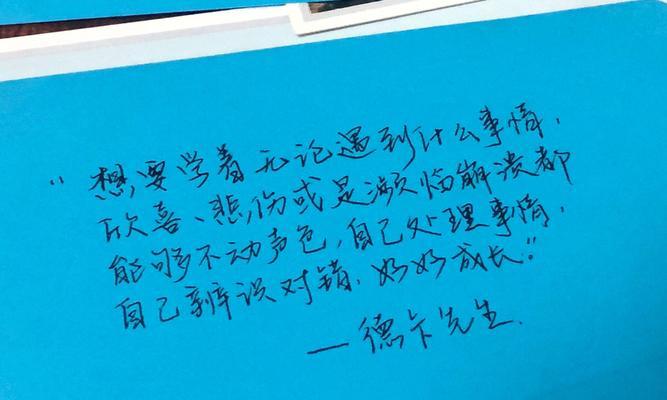 "想要学着无论遇到什么事情,
欣喜、悲伤或是濒临崩溃都
能够不动声色,自己处理事情,
自己辨识对错,好好成长。"
—德卡先生